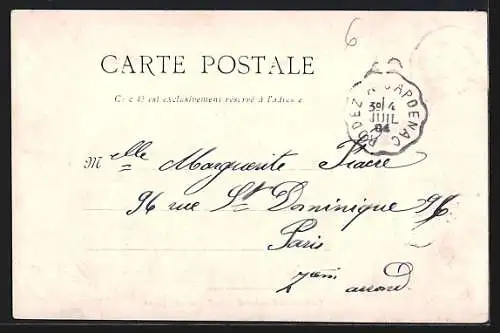 6
CARTE POSTALE
Ce côté est exclusivement réservé à l'adresse
RODEZ A CAPDENAC
3e/4
JUIL
04
Melle Marguerite Fiacre
96 rue St Dominique 96
Paris
7em arrond.